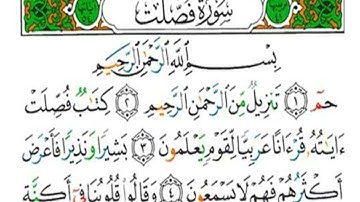 سُورَةُ فُصِّلَتْ
بِسْمِ ٱللَّهِ ٱلرَّحْمَٰنِ ٱلرَّحِيمِ
حمٓ ١ تَنزِيلٌ مِّنَ ٱلرَّحْمَٰنِ ٱلرَّحِيمِ ٢ كِتَٰبٌ فُصِّلَتْ
ءَايَٰتُهُۥ قُرْءَانًا عَرَبِيًّا لِّقَوْمٍ يَعْلَمُونَ ٣ بَشِيرًا وَنَذِيرًا فَأَعْرَضَ
أَكْثَرُهُمْ فَهُمْ لَا يَسْمَعُونَ ٤ وَقَالُوا۟ قُلُوبُنَا فِىٓ أَكِنَّةٍ